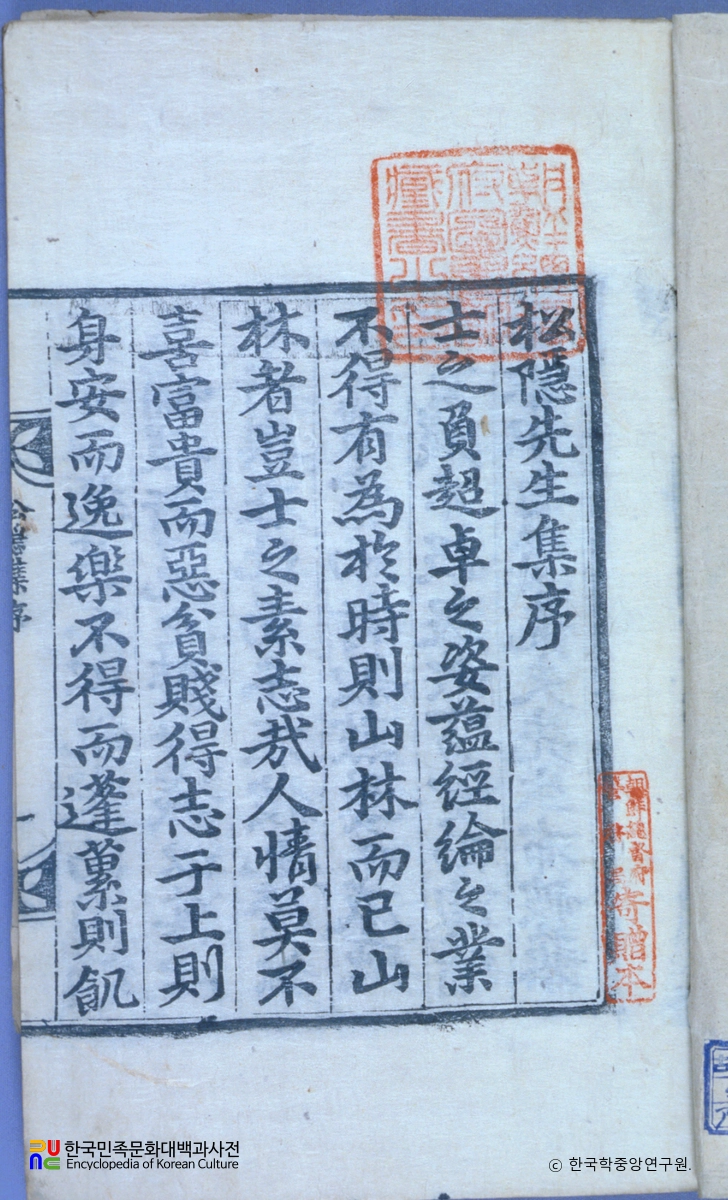 松隱先生集序
士之負超卓之姿蘊經綸之業
不得有為於時則山林而已山
林者豈士之素志哉人情莫不
喜富貴而惡貧賤得志于上則
身安而逸樂不得而蓬藁則飢
松隱集序
一
寄贈本
한국민족문화대백과사전
Encyclopedia of Korean Culture
© 한국학중앙연구원.